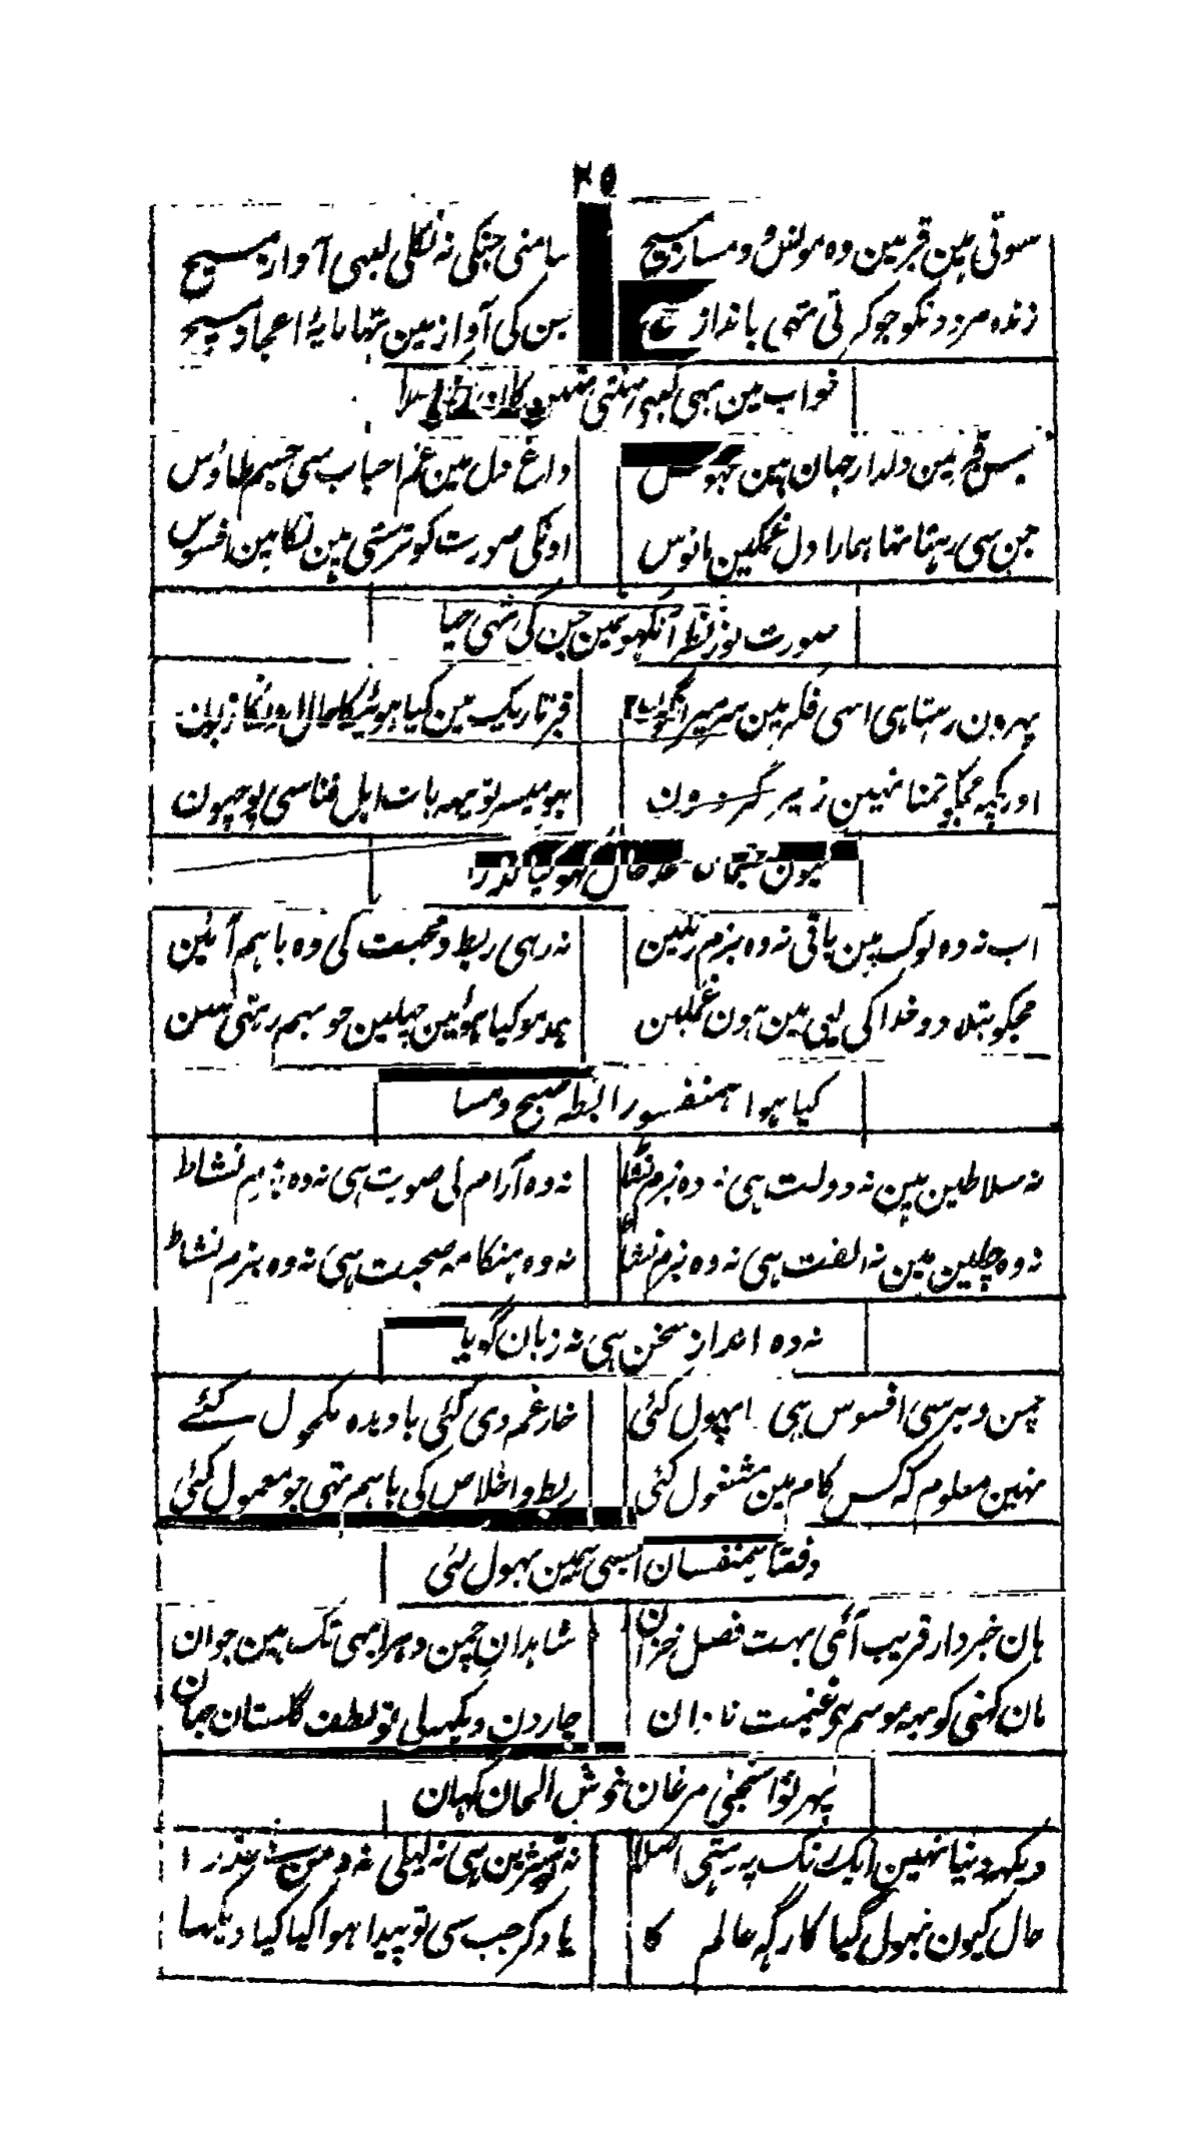 ۲۵
سوتی ہین قبر مین وہ مونس و دمساز مسیح
سامنی جنکی نہ نکلی کبہی آواز مسیح
زندہ مردونکو جو کرتی تہی بانداز مسیح
جن کی آواز مین تہا مایۂ اعجاز مسیح
خواب مین بہی کبہی سنتی نہین
قبر مین دلدار جہان ہین محبوس
داغ دل مین غم احباب سی جسم طاؤس
جن سی رہتا تہا ہمارا دل غمگین مانوس
اونکی صورت کو ترستی ہین نگاہین افسوس
صورت نور نظر آنکہو نمین جن کی تہی جا
پہرون رہتا ہی اسی فکر مین سر میرا نگون
قبر تاریک مین کیا ہوئیگا حال اونکا زبون
اور کچہ مجکو تمنا نہین زیر گردون
ہو میسر تو یہہ بات اہل فنا سی پوچہون
کیون حال کہو کیا گذرا
اب نہ وہ لوگ ہین باقی نہ وہ بزم رنگین
نہ رہی ربط و محبت کی وہ باہم آئین
مجکو بتلا دو خدا کی لیی مین ہون غمگین
ہمدمو کیا ہوئین چہلین جو بہم رہتی تہین
کیا ہوا ہمنفسو رابطہ صبح و مسا
نہ سلاطین ہین نہ دولت ہی نہ وہ بزم نشاط
نہ وہ آرام کی صورت ہی نہ وہ بزم نشاط
نہ وہ چہلین ہین نہ الفت ہی نہ وہ بزم نشاط
نہ وہ ہنکامہ صحبت ہی نہ وہ بزم نشاط
نہ وہ انداز سخن ہی نہ زبان گویا
چمن دہر سی افسوس ہی پہول گئی
خار غم دی گئی با دیدہ مکحول گئے
نہین معلوم کہ کس کام مین مشغول گئی
ربط و اخلاص کی باہم تہی جو معمول گئی
دفعتاً ہمنفسان ایسی ہمین بہول گئی
ہان خبردار قریب آئی بہت فصل خزان
شاہدان چمن دہر ابہی تک ہین جوان
مان کہنی کو یہہ موسم ہی غنیمت نادان
چار دن دیکہہ لی تو لطف گلستان جہان
پہر نوا سنجیٔ مرغان خوش الحان کہان
دیکہہ دنیا نہین ایک رنگ پہ رہتی اصلا
نہ شیرین ہی نہ لیلی نہ وامق نہ عذرا
حال کیون بہول گیا کارگہ عالم کا
یاد کر جب سی تو پیدا ہوا کیا کیا دیکہا